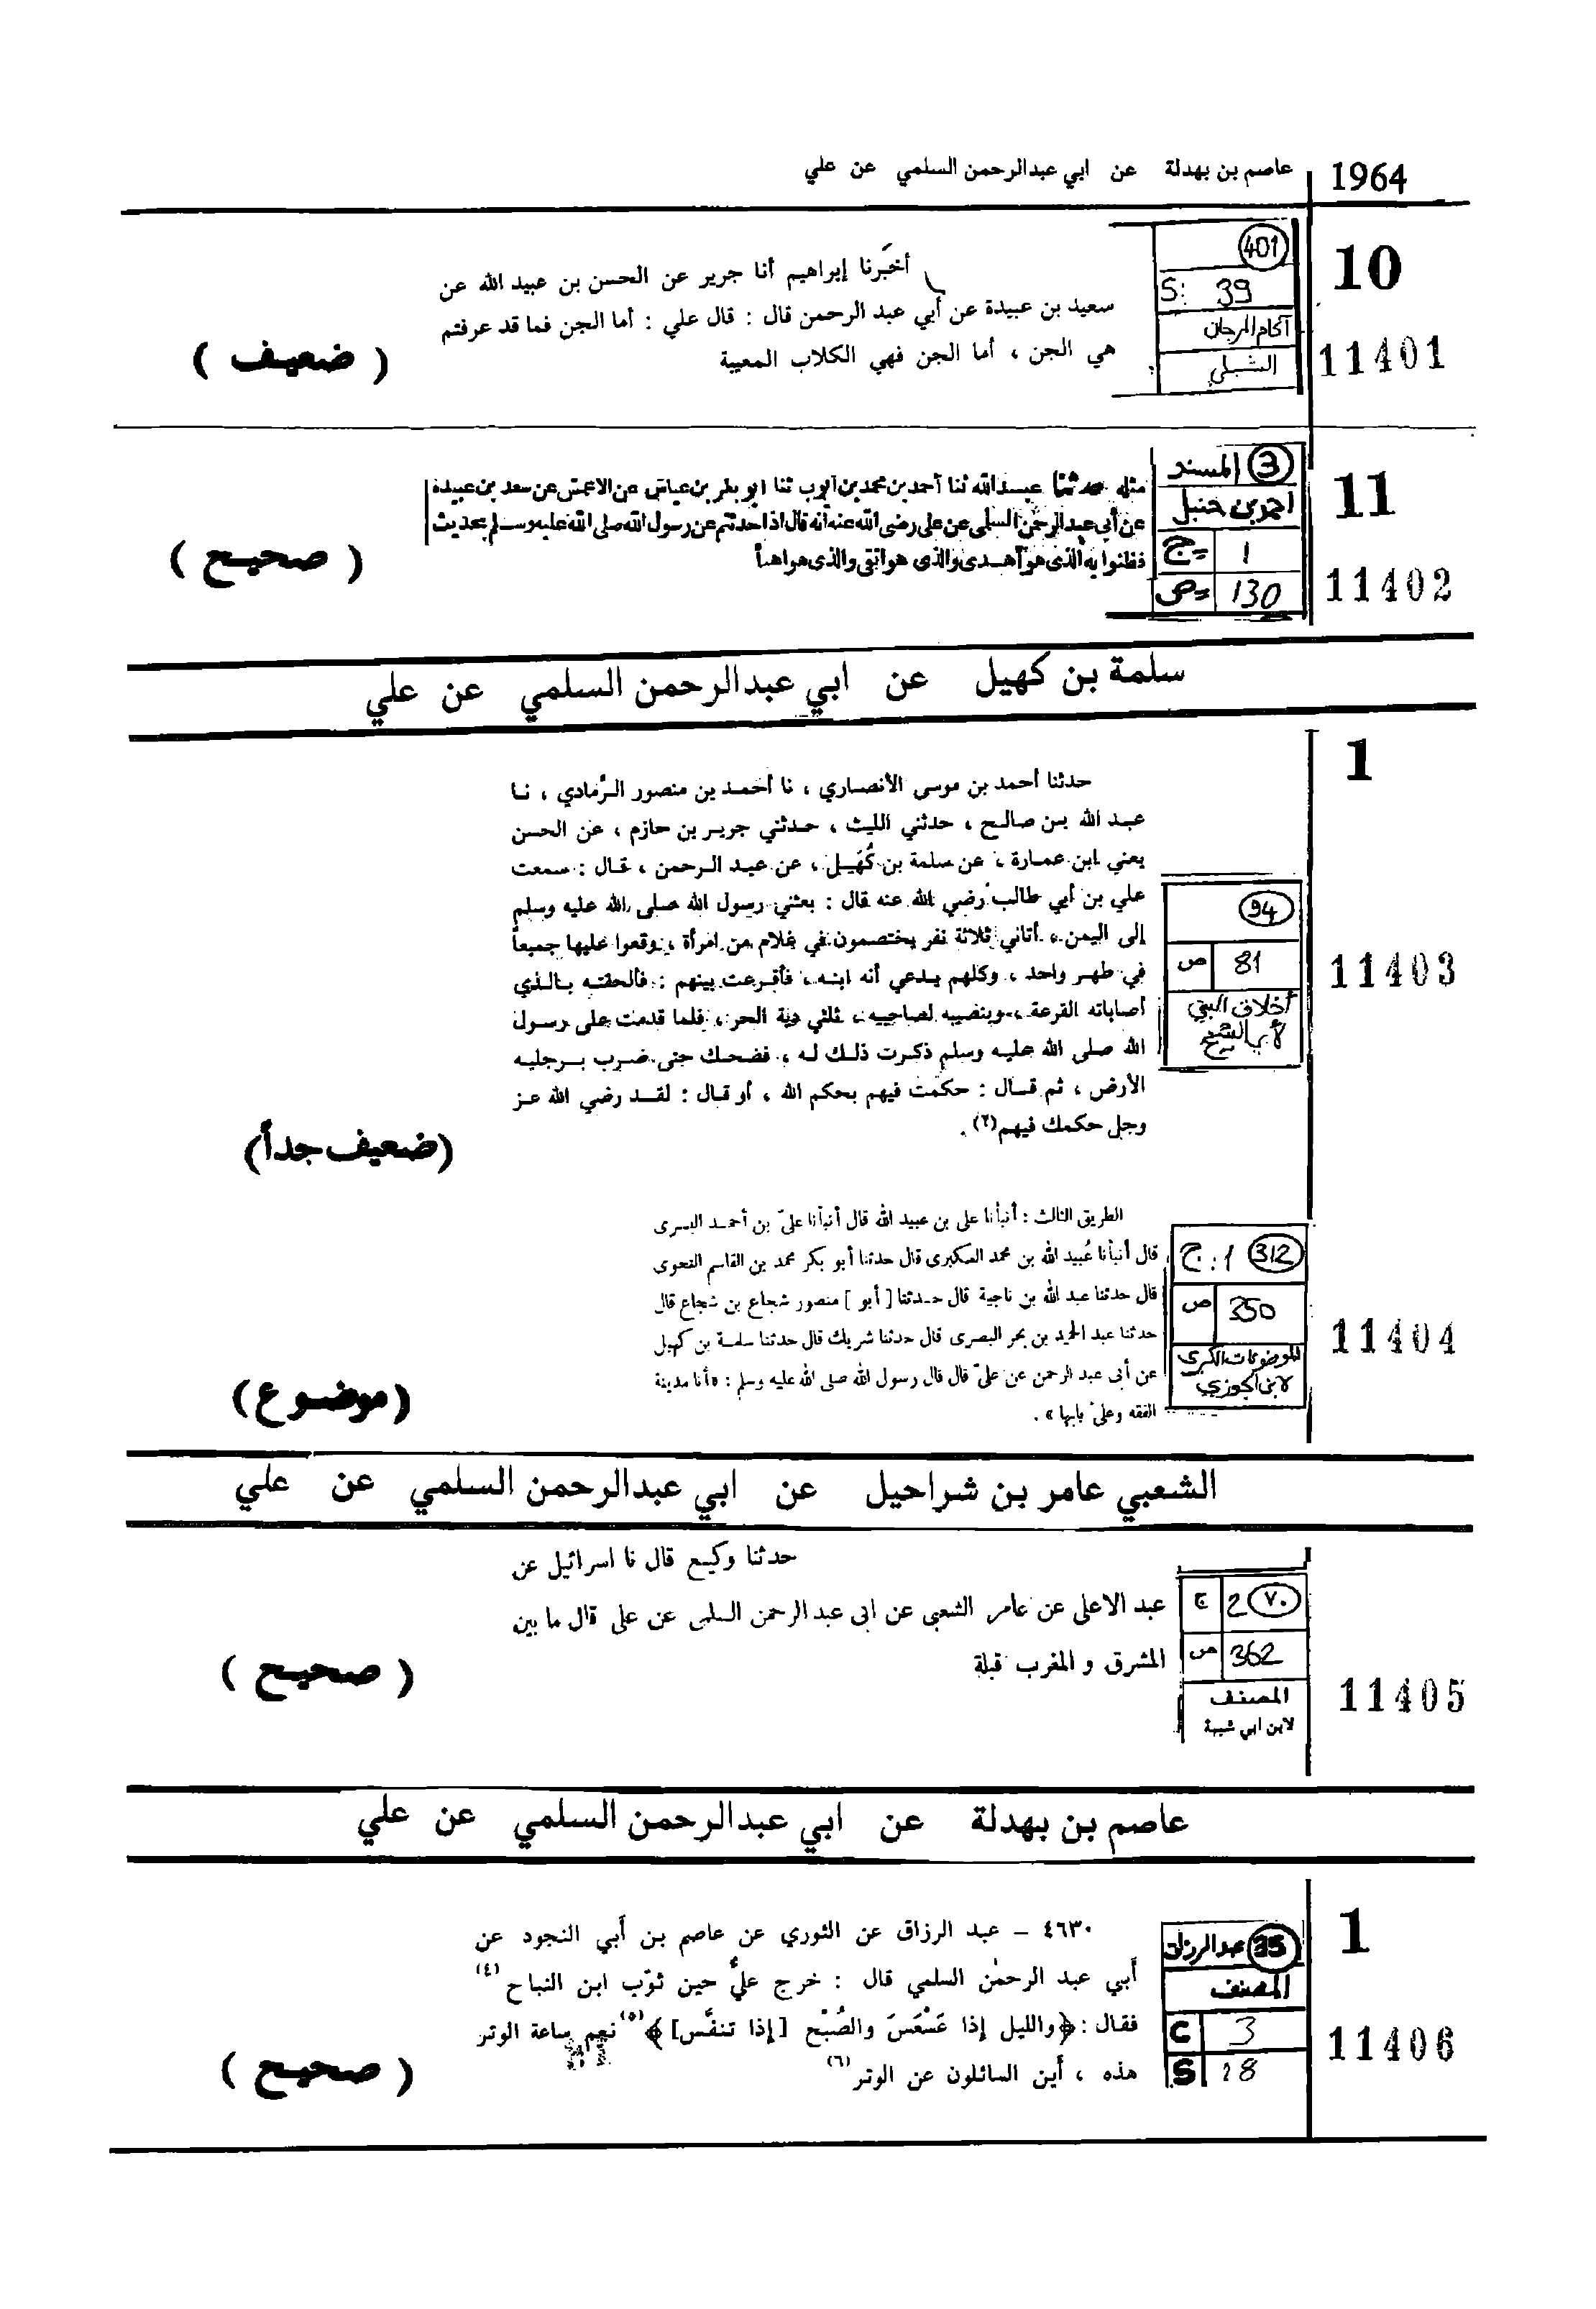 1964 عاصم بن بهدلة عن ابي عبدالرحمن السلمي عن علي
10
401
S: 39
آكام المرجان
الشبلي
11401
أخبرنا إبراهيم أنا جرير عن الحسن بن عبيد الله عن
سعيد بن عبيدة عن أبي عبد الرحمن قال : قال علي : أما الجن فما قد عرفتم
هي الجن ، أما الجن فهي الكلاب المعيبة
( ضعيف )
11
3 المسند
احمد بن حنبل
ج 1
ص 130
11402
مثله حدثنا عبد الله ثنا أحمد بن محمد بن أيوب ثنا ابو بكر بن عياش عن الاعمش عن سعد بن عبيدة
عن أبي عبد الرحمن السلمى عن على رضى الله عنه أنه قال اذا حدثتم عن رسول الله صلى الله عليه وسلم بحديث
فظنوا به الذى هو أهدى والذى هو اتقى والذى هو اهنأ
( صحيح )
سلمة بن كهيل عن ابي عبدالرحمن السلمي عن علي
1
94
ص 81
أخلاق النبي
لأبي الشيخ
11403
حدثنا أحمد بن موسى الأنصاري ، نا أحمد بن منصور الرمادي ، نا
عبد الله بن صالح ، حدثني الليث ، حدثني جرير بن حازم ، عن الحسن
يعني ابن عمارة ، عن سلمة بن كُهَيل ، عن عبد الرحمن ، قال : سمعت
علي بن أبي طالب رضي الله عنه قال : بعثني رسول الله صلى الله عليه وسلم
إلى اليمن ، أتاني ثلاثة نفر يختصمون في غلام من امرأة ، وقعوا عليها جميعاً
في طهر واحد ، وكلهم يدعي أنه ابنه ، فأقرعت بينهم : فألحقته بالذي
أصاباته القرعة ، وبنصيبه لصاحبيه ، ثلثي دية الحر ، فلما قدمت على رسول
الله صلى الله عليه وسلم ذكرت ذلك له ، فضحك حتى ضرب برجليه
الأرض ، ثم قال : حكمت فيهم بحكم الله ، أو قال : لقد رضي الله عز
وجل حكمك فيهم(٢) .
(ضعيف جداً)
312 ج : 1
ص 350
الموضوعات الكبرى
لابن الجوزي
11404
الطريق الثالث : أنبأنا على بن عبيد الله قال أنبأنا علىّ بن أحمد البسرى
قال أنبأنا عُبيد الله بن محمد العكبرى قال حدثنا أبو بكر محمد بن القاسم النحوى
قال حدثنا عبد الله بن ناجية قال حدثنا [ أبو ] منصور شجاع بن شجاع قال
حدثنا عبد الحميد بن بحر البصرى قال حدثنا شريك قال حدثنا سلمة بن كهيل
عن أبى عبد الرحمن عن علىّ قال قال رسول الله صلى الله عليه وسلم : «أنا مدينة
الفقه وعلىّ بابها » .
(موضوع)
الشعبي عامر بن شراحيل عن ابي عبدالرحمن السلمي عن علي
ج 2 ٧٠
ص 362
المصنف
لابن ابي شيبة
11405
حدثنا وكيع قال نا اسرائيل عن
عبد الاعلى عن عامر الشعبى عن ابى عبد الرحمن السلمى عن على قال ما بين
المشرق و المغرب قبلة
( صحيح )
عاصم بن بهدلة عن ابي عبدالرحمن السلمي عن علي
1
35 عبد الرزاق
المصنف
C 3
S 18
11406
٤٦٣٠ – عبد الرزاق عن الثوري عن عاصم بن أبي النجود عن
أبي عبد الرحمٰن السلمي قال : خرج عليٌّ حين ثوّب ابن النباح (٤)
فقال : ﴿والليل إذا عَسْعَسَ والصُبْح [إذا تنفَّس]﴾(٥) نعم ساعة الوتر
هذه ، أين السائلون عن الوتر (٦)
( صحيح )